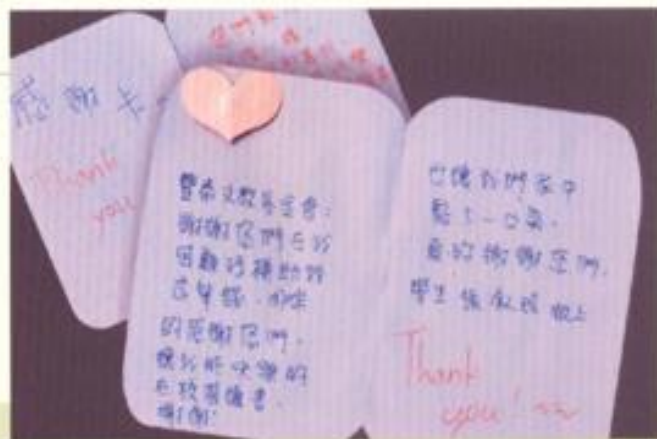 感謝卡
Thank
you
豐泰文教基金會:
謝謝您們在我
困難時補助我
這筆錢,
的感謝您們,
讓我能快樂的
在校裡讀書,
謝謝!
也讓我們家中
鬆了一口氣,
真的謝謝您們,
學生 敬上
Thank
you!